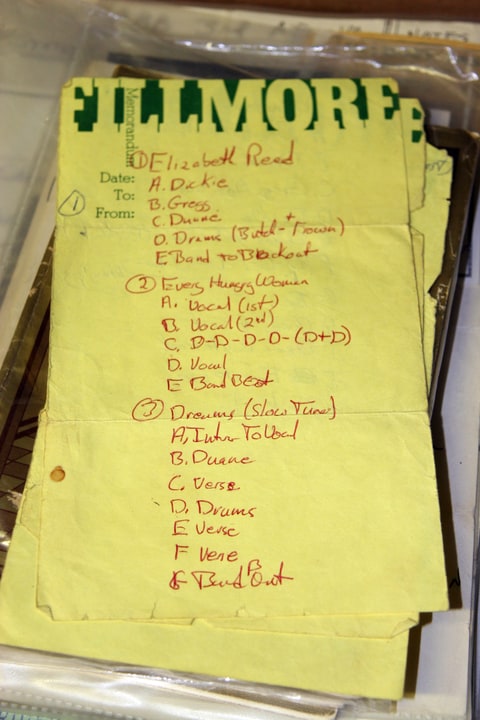 NOTES
FILLMORE
Memorandum
① Elizabeth Reed
Date:
A. Dickie
To:
B. Gregg
①
From:
C. Duane
D. Drums (Butch +
E Band to Blackout
② Every Hungry Women
A. Vocal (1st)
B. Vocal (2nd)
C. D-D-D-D-(D+D)
D. Vocal
E Band Beat
③ Dreams (Slow Tune)
A, Intro To Vocal
B. Duane
C. Verse
D. Drums
E Verse
F Verse
G Band B Out